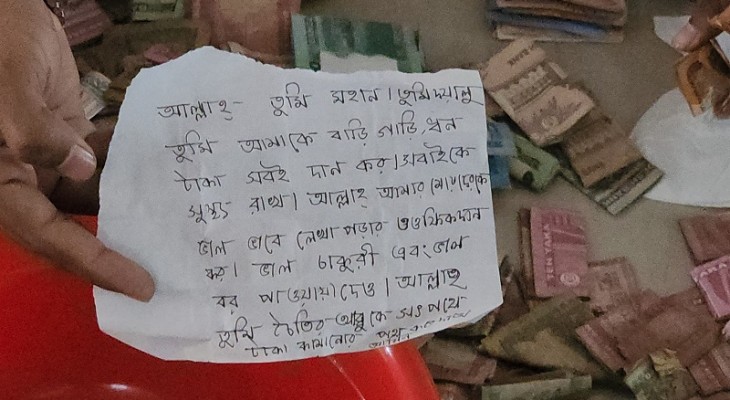 আল্লাহ্- তুমি মহান। তুমি দয়ালু
তুমি আমাকে বাড়ি গাড়ি, ধন
টাকা সবই দান কর। সবাইকে
সুস্থ্য রাখ। আল্লাহ্ আমার মেয়েদেরকে
ভাল ভাবে লেখা পড়ার তওফিকদান
কর। ভাল চাকুরী এবং ভাল
বর পাওয়ায়ে দেও। আল্লাহ্
তুমি চৈতির আব্বুকে সৎ পথে
টাকা কামানোর পথ
TEN TAKA